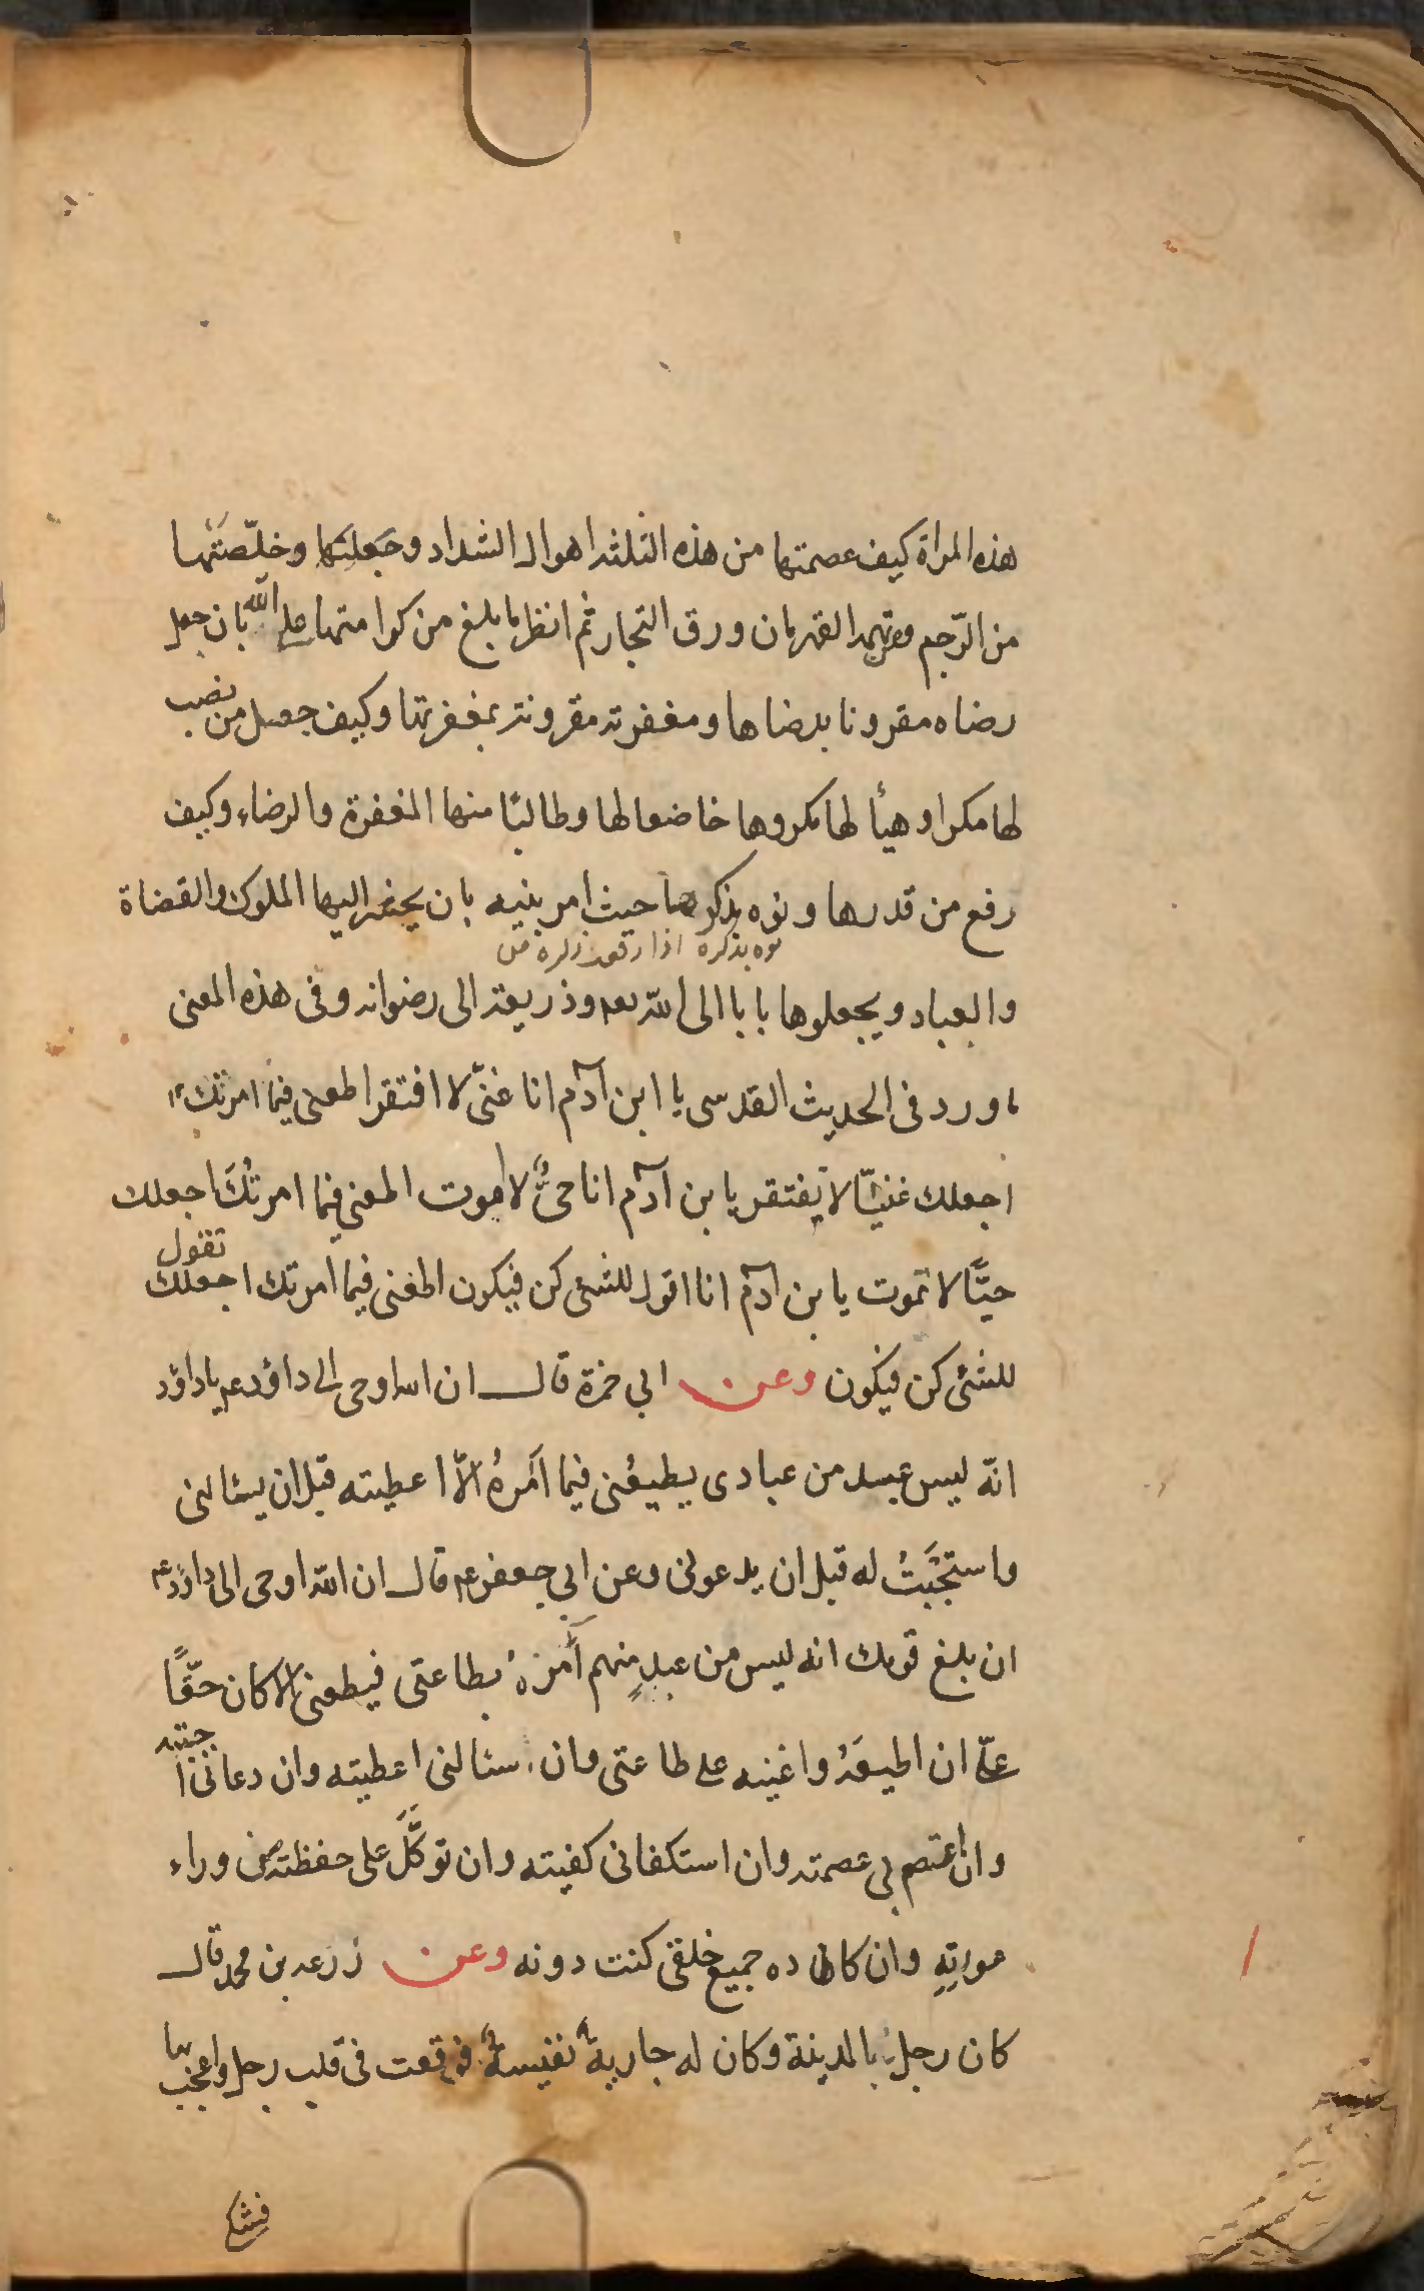 هذه المراة كيف عصمتها من هذه الثلثه اهوال الشداد وجعلتها وخلّصتها
من الرّجم وتهمه القهرمان ورق التجار ثم انظر ما بلغ من كرامتها على الله بان جعل
رضاه مقرونا برضاها ومغفرته مقرونة بمغفرتها وكيف جعل من نصب
لها مكرا وهيأ لها مكروها خاضعا لها وطالبًا منها المغفرة والرضاء وكيف
رفع من قدرها ونوه بذكرها حيث امر بنيه بان يحضر اليها الملوك والقضاة
نوه بذكره اذا رفع ذكره
والعباد ويجعلوها بابا الى الله تعه وذريعة الى رضوانه وفى هذه المعنى
ما ورد فى الحديث القدسى يا ابن آدم انا غنىّ لا افتقر اطعنى فيما امرتك
اجعلك غنيّا لا تفتقر يا بن آدم انا حىٌّ لا اموت اطعنى فيما امرتُكَ اجعلك
حيًّا لا تموت يا بن آدم انا اقول للشئ كن فيكون اطعنى فيما امرتك اجعلك تقول
للشئ كن فيكون وعن ابي حمزة قال ان الله اوحى الى داؤد عم يا داؤد
انّه ليس عبد من عبادى يطيعُنى فيما آمُرهُ الاّ اعطيته قبل ان يسئالنى
واستجَبتُ له قبل ان يدعونى وعن ابي جعفر عم قال ان الله اوحى الى داؤد عم
ان بلغ قومك انه ليس من عبدٍ منهم آمره بطاعتى فيطعنى الا كان حقًّا
علىّ ان اطيعَهُ واعينه على طاعتى وان سئالنى اعطيته وان دعانى اجبته
وان اعتصم بي عصمته وان استكفانى كفيته وان توكَّل على حفظته من وراء
عورتِهِ وان كاده جميع خلقى كنت دونه وعن زرعه بن محمد قال
كان رجل بالمدينة وكان له جاريةٌ نفيسةٌ فوقعت فى قلب رجل واعجب بها
فشكى